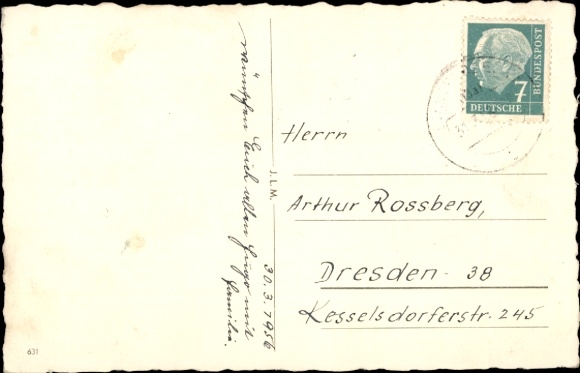 wünschen Euch allen Hugo mit
Familie.
30.3.1956
J.L.M.
7
DEUTSCHE
BUNDESPOST
Herrn
Arthur Rossberg,
Dresden - 38
Kesselsdorferstr. 245
631